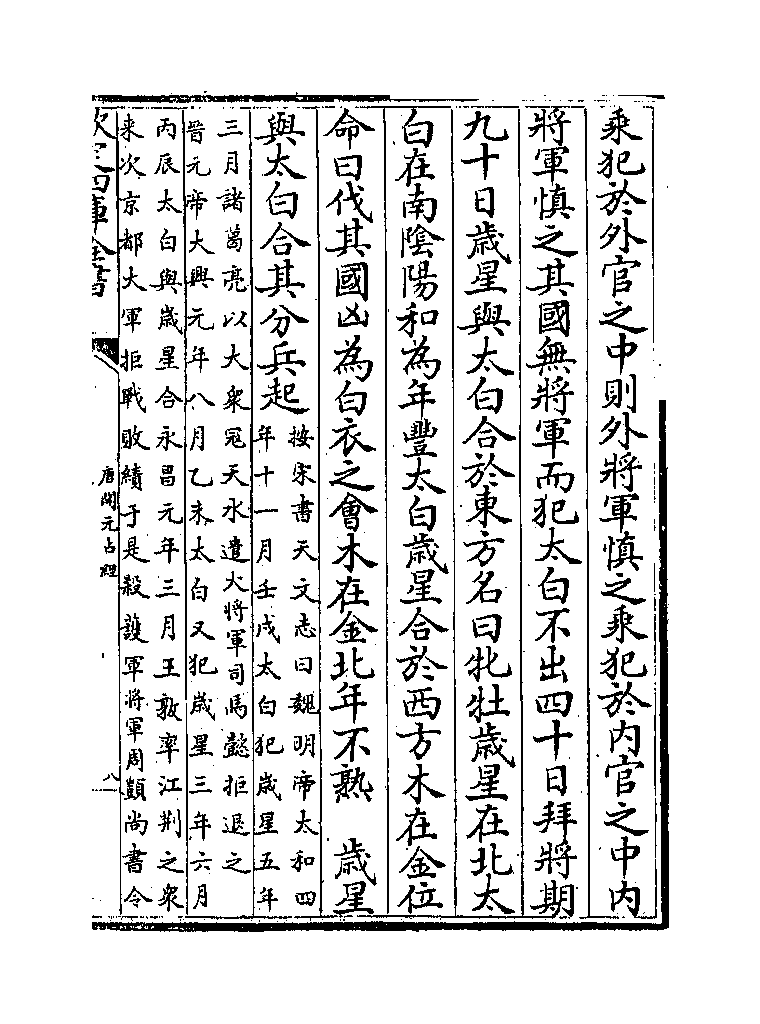 乘犯於外官之中則外將軍慎之乘犯於内官之中内
將軍慎之其國無將軍而犯太白不出四十日拜將期
九十日歳星與太白合於東方名曰牝牡歳星在北太
白在南陰陽和為年豐太白歳星合於西方木在金位
命曰伐其國凶為白衣之會木在金北年不熟　歳星
與太白合其分兵起
按宋書天文志曰魏明帝太和四
年十一月壬戌太白犯歳星五年
三月諸葛亮以大衆冦天水遣大將軍司馬懿拒退之
晉元帝大興元年八月乙未太白又犯歳星三年六月
丙辰太白與歳星合永昌元年三月王敦率江荆之衆
来次京都大軍拒戰敗績于是殺護軍將軍周顗尚書令
欽定四庫全書
唐開元占經
八